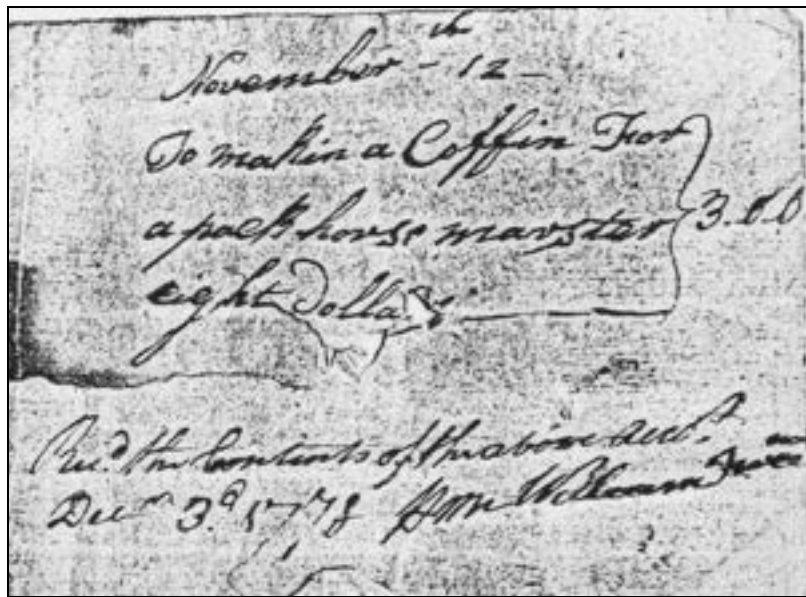 November - 12th -
To makin a Coffin For
a pack horse marster } 3.0.0
eight Dollars
Recd. the Contents of the above Acct.
Decm 3d 1778 William